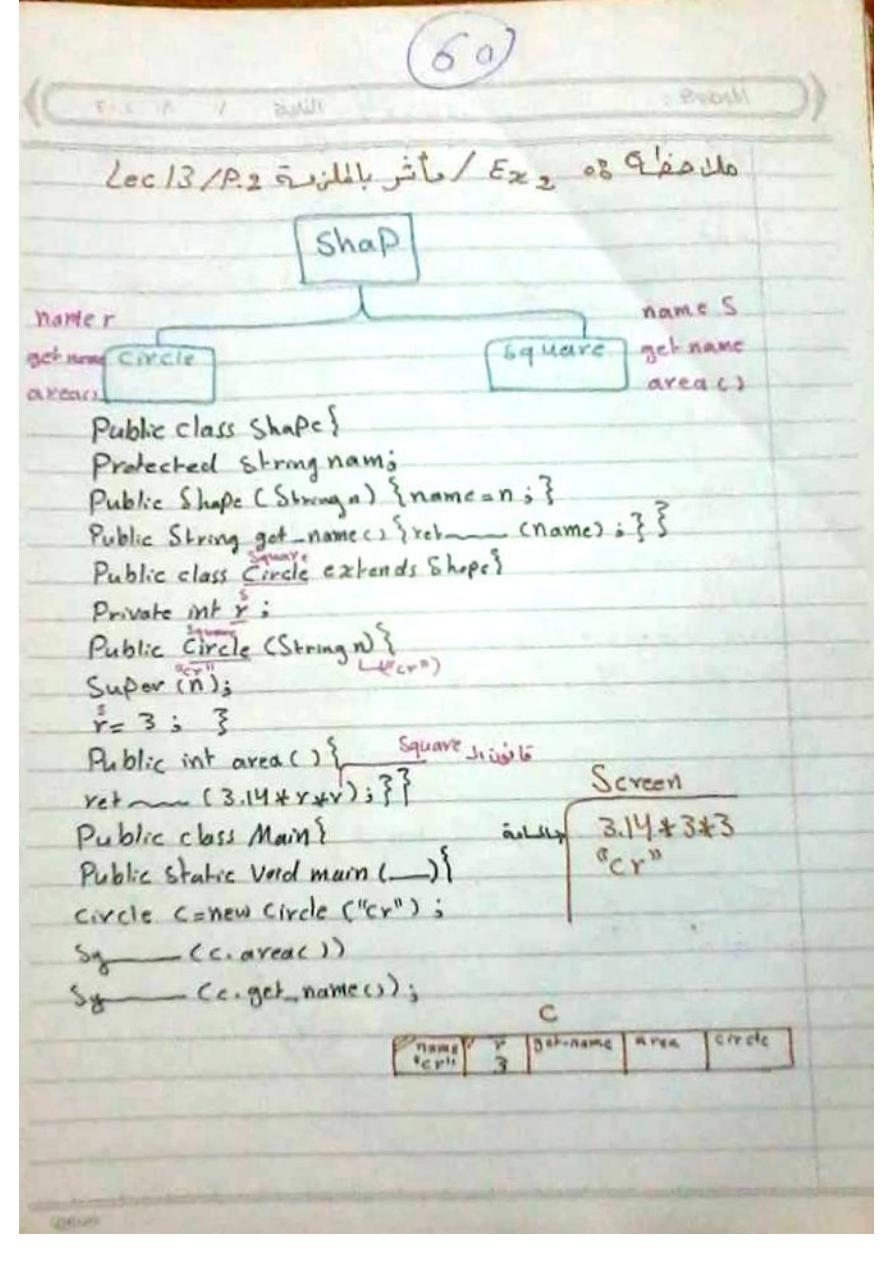 6a
ملاحظة Ex 2 / مأثر بالملزمة Lec 13/P.2
ShaP
name r
name S
get name
Circle
Square
get name
area()
area()
Public class Shape{
Protected String nam;
Public Shape (String n) {name=n;}
Public String get_name() {ret___ (name);}}
Square
Public class Circle extends Shape{
s
Private int r;
Square
Public Circle (String n) {
"cr"
("cr")
Super (n);
s
r= 3; }
Public int area() {
Square
ret___ (3.14*r*r);}}
Screen
Public class Main{
3.14*3*3
Public static Void main (___){
"cr"
Circle C=new Circle ("cr");
Sy___ (c.area())
Sy___ (c.get_name());
C
name r get-name area circle
"cr" 3